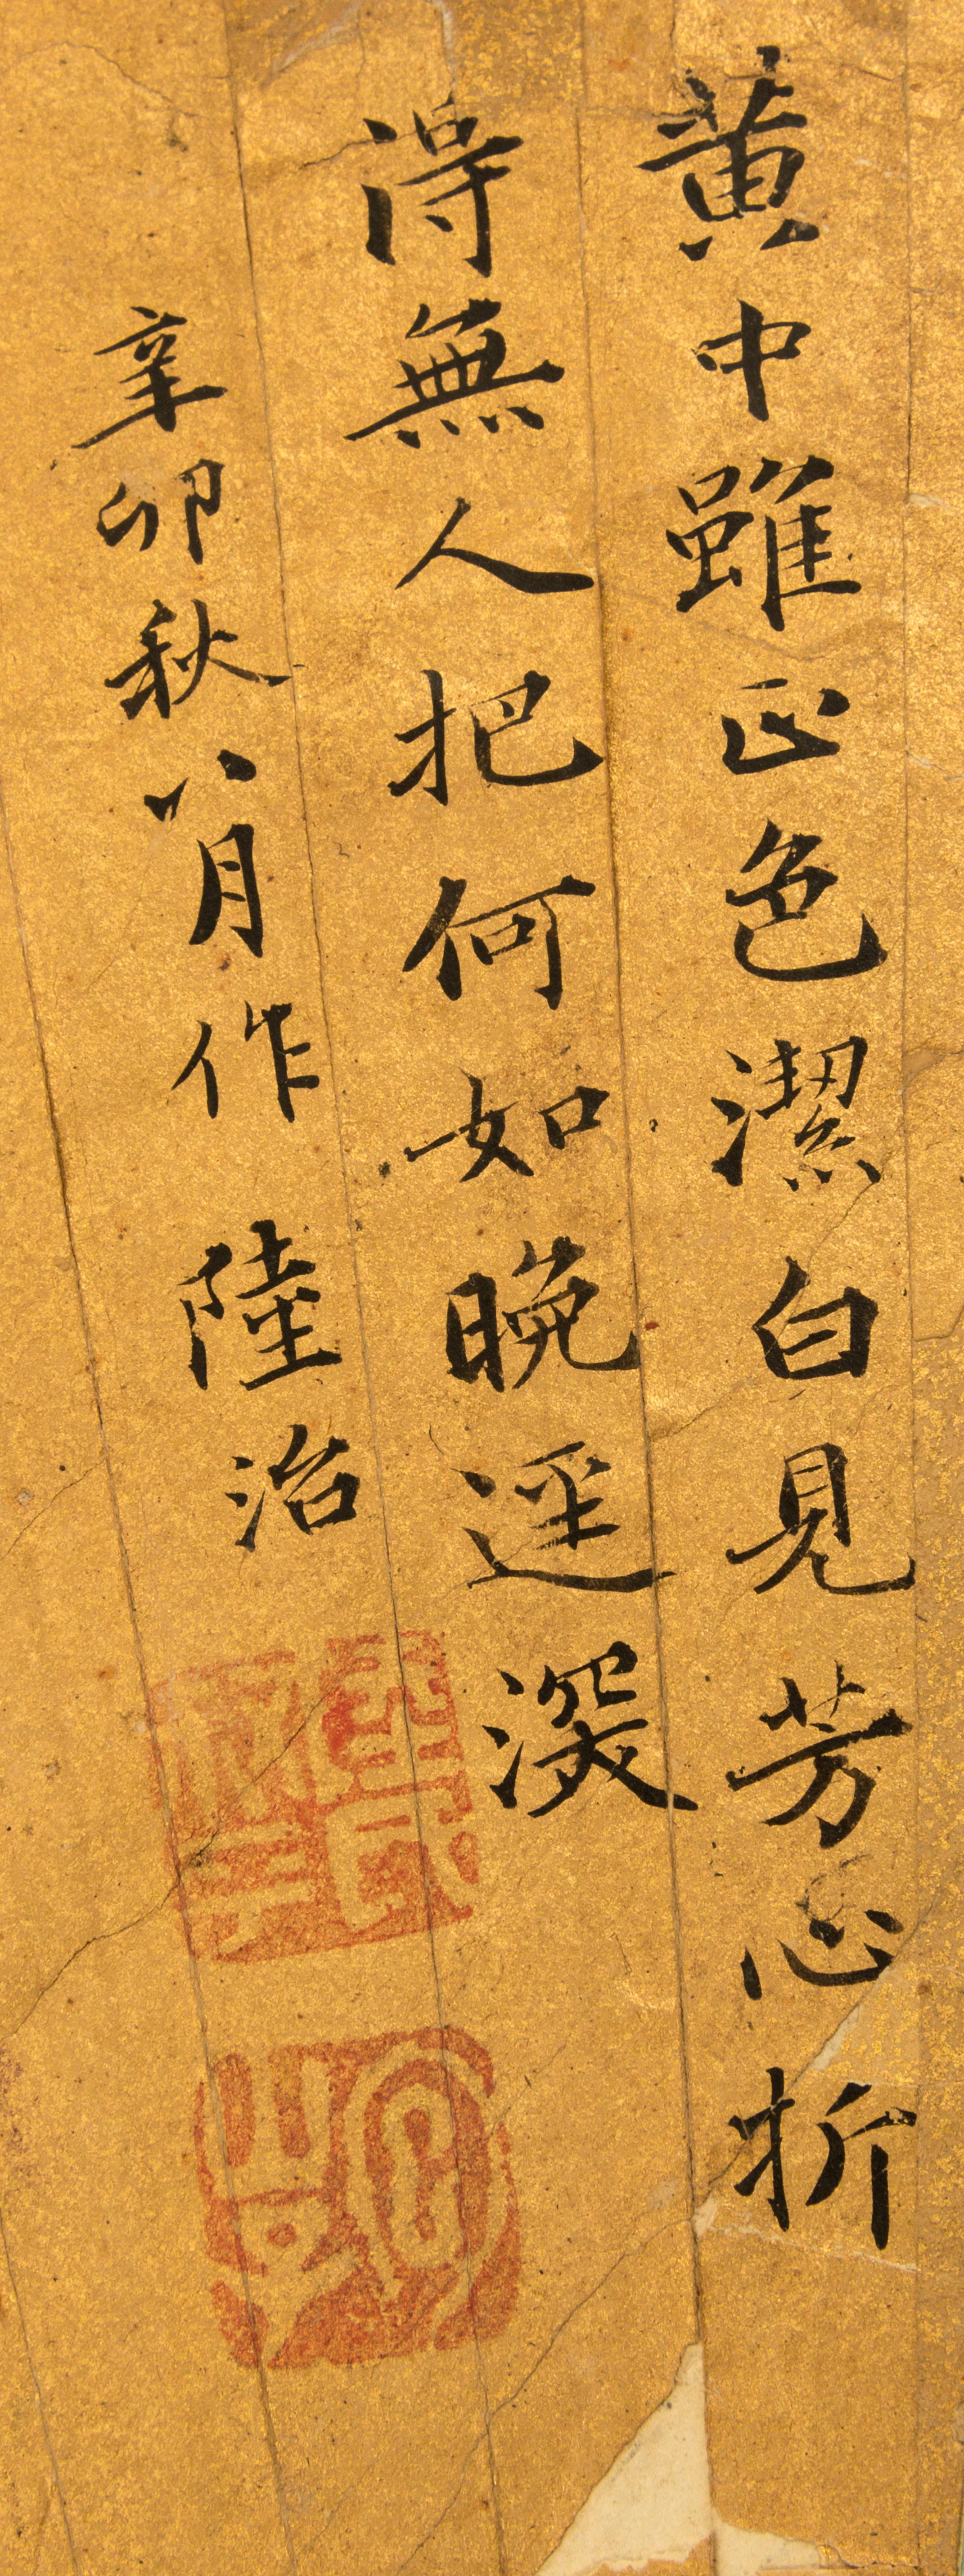 黄中雖正色潔白見芳心折
得無人把何如晚逕深
辛卯秋八月作 陸治